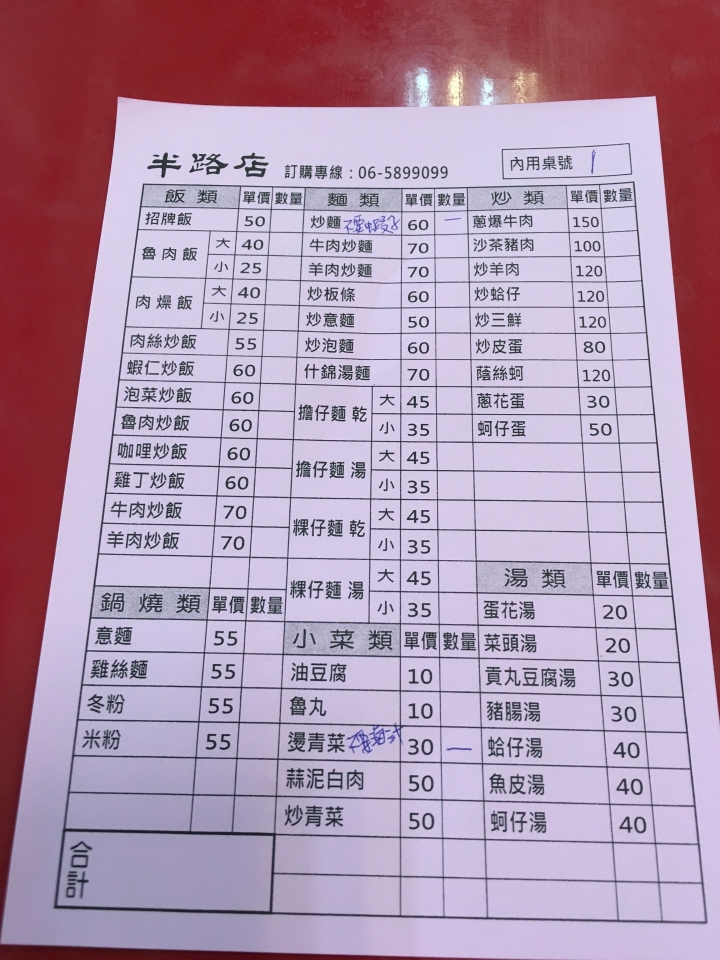 半路店 訂購專線：06-5899099 內用桌號 1
飯類 單價 數量
招牌飯 50
魯肉飯 大 40
小 25
肉燥飯 大 40
小 25
肉絲炒飯 55
蝦仁炒飯 60
泡菜炒飯 60
魯肉炒飯 60
咖哩炒飯 60
雞丁炒飯 60
牛肉炒飯 70
羊肉炒飯 70
鍋燒類 單價 數量
意麵 55
雞絲麵 55
冬粉 55
米粉 55
合計
麵類 單價 數量
炒麵 不要蝦子 60 一
牛肉炒麵 70
羊肉炒麵 70
炒板條 60
炒意麵 50
炒泡麵 60
什錦湯麵 70
擔仔麵 乾 大 45
小 35
擔仔麵 湯 大 45
小 35
粿仔麵 乾 大 45
小 35
粿仔麵 湯 大 45
小 35
小菜類 單價 數量
油豆腐 10
魯丸 10
燙青菜 30 一
蒜泥白肉 50
炒青菜 50
炒類 單價 數量
蔥爆牛肉 150
沙茶豬肉 100
炒羊肉 120
炒蛤仔 120
炒三鮮 120
炒皮蛋 80
蔭絲蚵 120
蔥花蛋 30
蚵仔蛋 50
湯類 單價 數量
蛋花湯 20
菜頭湯 20
貢丸豆腐湯 30
豬腸湯 30
蛤仔湯 40
魚皮湯 40
蚵仔湯 40